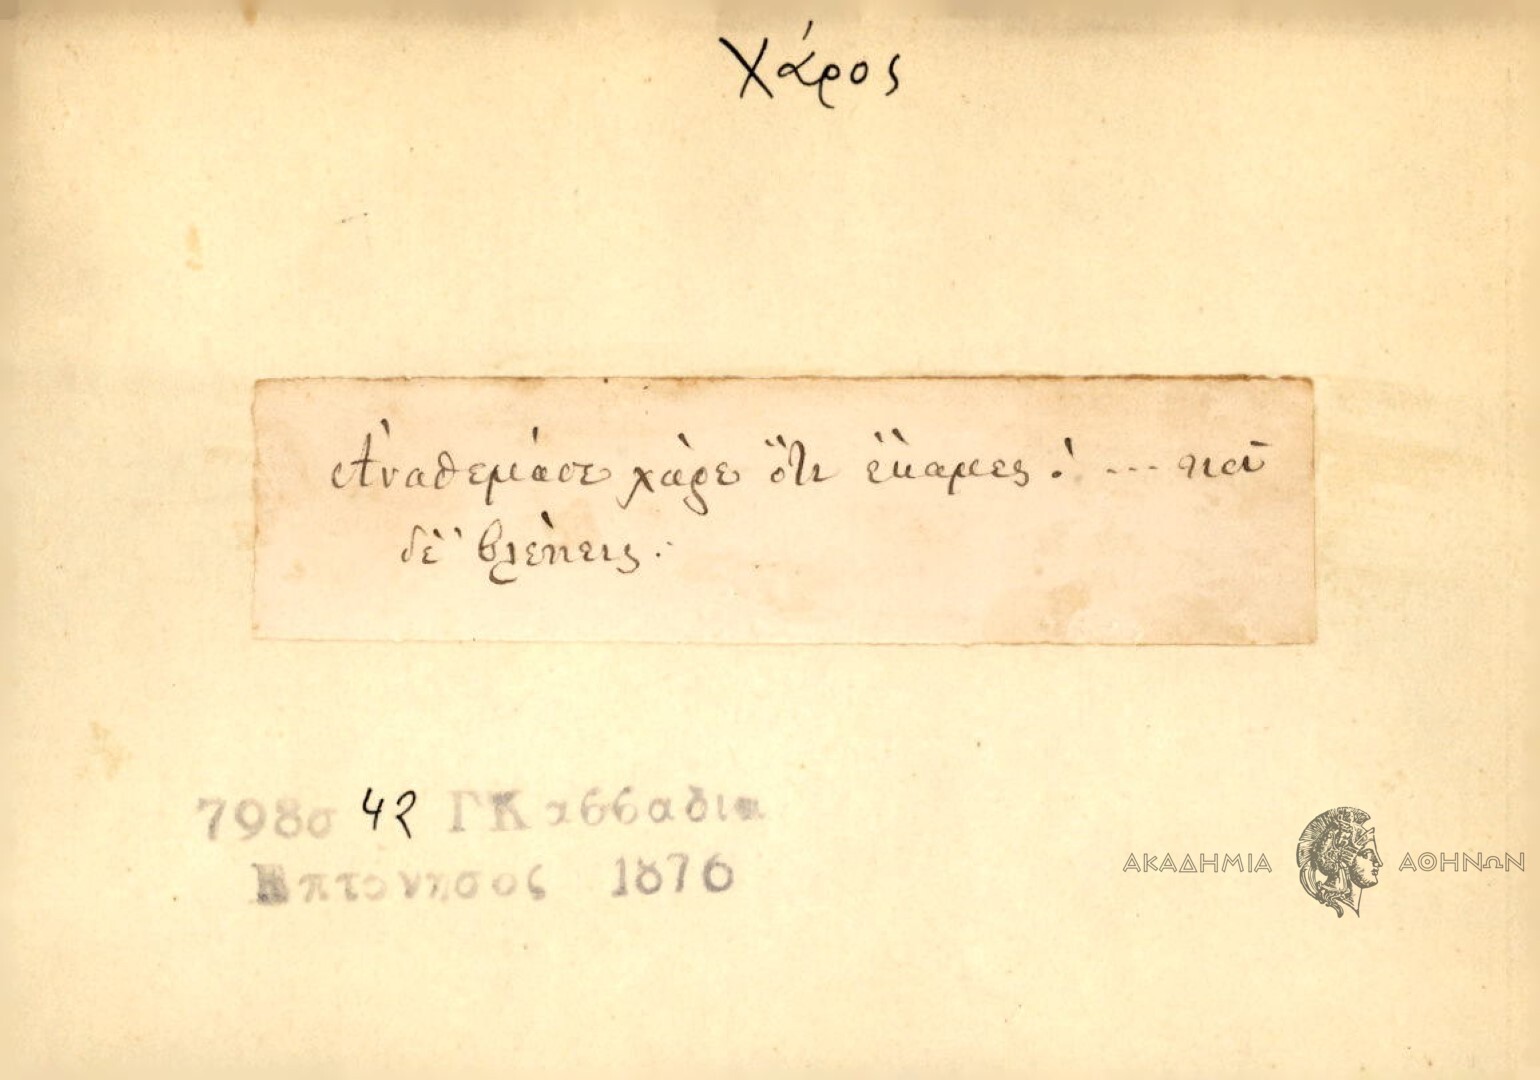 Χάρος
Ἀναθεμάσε χάρε ὅτι ἔκαμες! ... καὶ
δὲ βλέπεις.
798σ 42 ΓΚασσαδια
Επτονησος 1876
ΑΚΑΔΗΜΙΑ ΑΘΗΝΩΝ